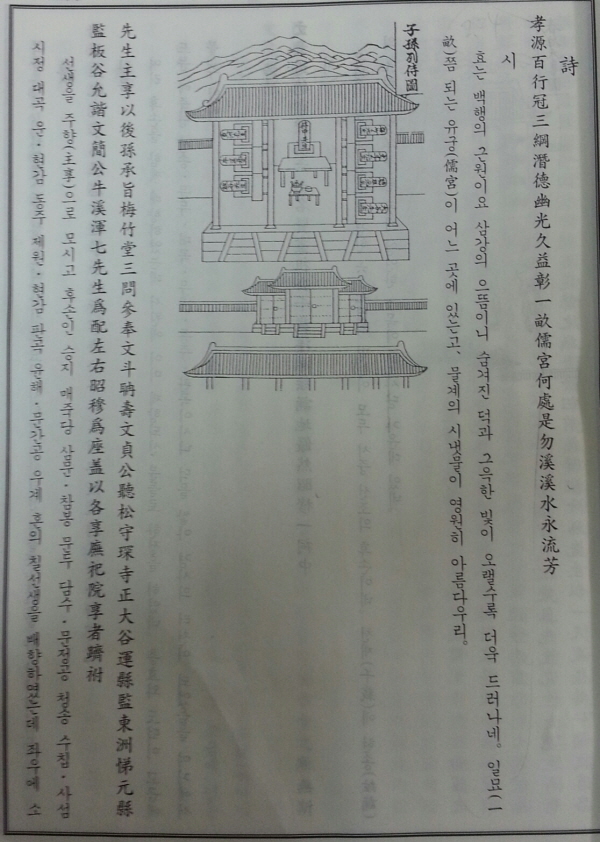 詩
孝源百行冠三綱潛德幽光久益彰一畝儒宮何處是勿溪溪水永流芳
시
효는 백행의 근원이요 삼강의 으뜸이니 숨겨진 덕과 그윽한 빛이 오랠수록 더욱 드러나네。 일묘(一
畝)쯤 되는 유궁(儒宮)이 어느 곳에 있는고、 물계의 시냇물이 영원히 아름다우리。
子孫列侍圖
先生主享以後孫承旨梅竹堂三問參奉文斗聃壽文貞公聽松守琛寺正大谷運縣監東洲悌元縣
監板谷允諧文簡公牛溪渾七先生爲配左右昭穆爲座盖以各享廡祀院享者躋祔
선생을 주향(主享)으로 모시고 후손인 승지 매죽당 삼문・참봉 문두 담수・문정공 청송 수침・사섬
시정 대곡 운・현감 동주 제원・현감 판곡 윤해・문간공 우계 혼의 칠선생을 배향하였는데 좌우에 소